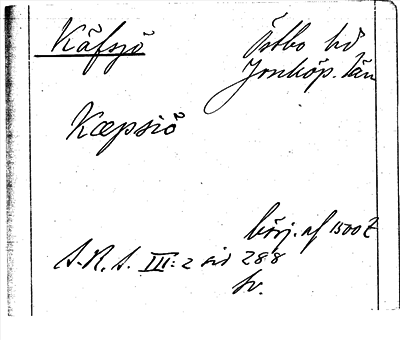 Käfsjö
Östbo hd
Jönköp. län
Kæpsiö
börj. af 1500 t
S.R.S. III:2 sid 288
sv.